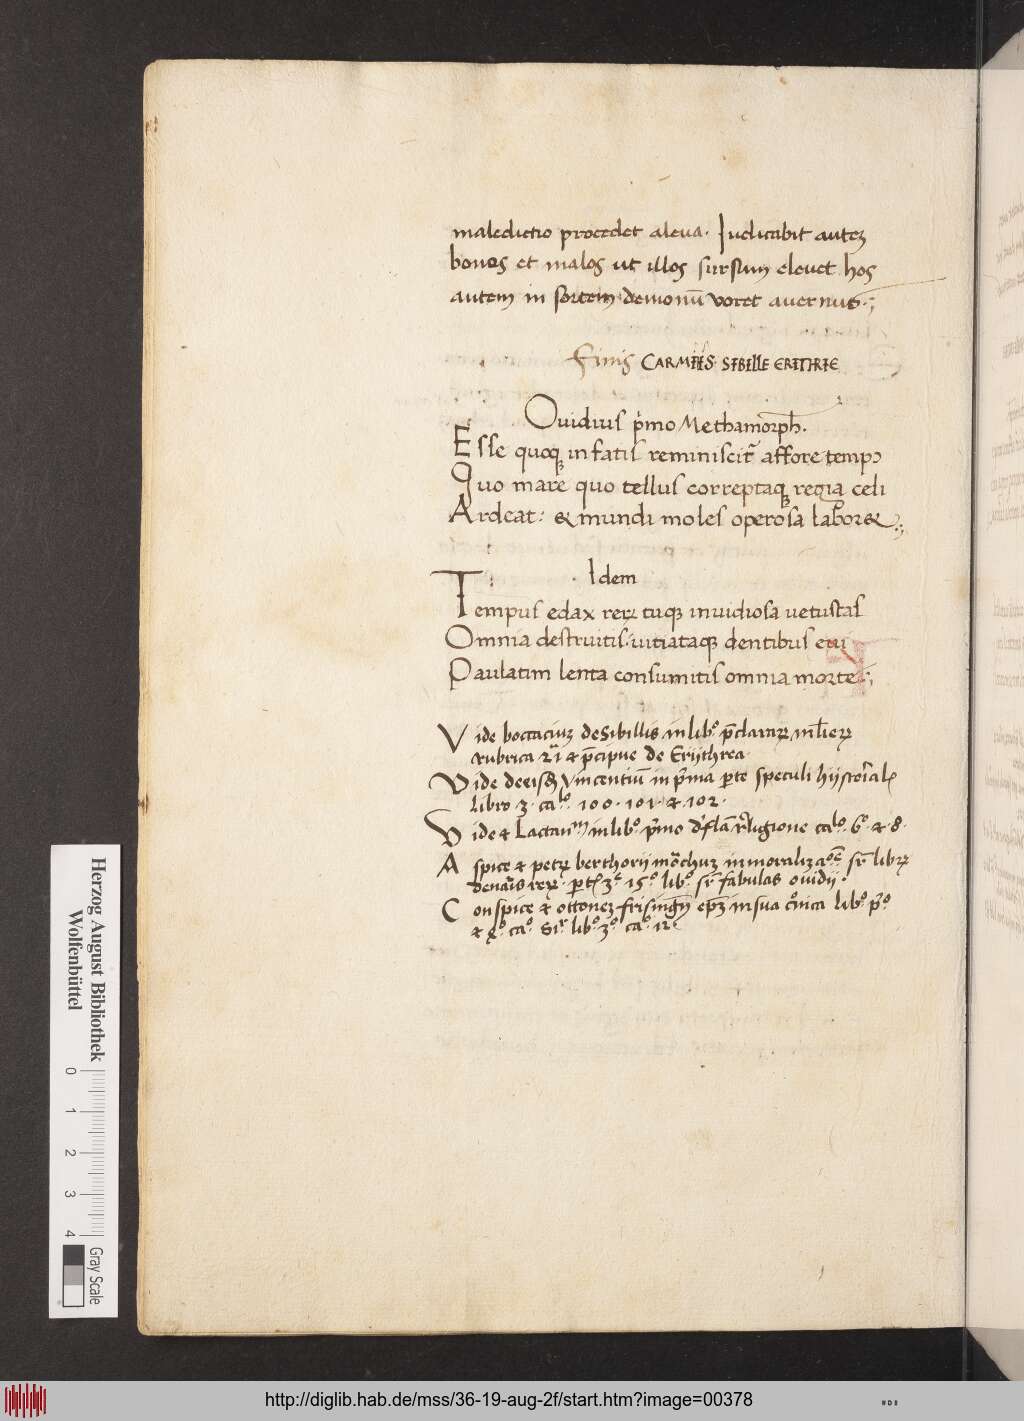 maledictio procedet aleva. Iudicabit autez
bonos et malos ut illos sursum elevet hos
autem in sortem demonū voret avernus.;
Finis CARMIIS. SIBILLE ERITHRIE
Ouidius p̄mo Methamorph̄.
Esse quoqꝫ in fatis reminiscit᷑ affore tempꝰ
Quo mare quo tellus correptaqꝫ regia celi
Ardeat: & mundi moles operosa labor&.;
Idem
Tempus edax reꝝ tuqꝫ inuidiosa uetustas
Omnia destruitis: uitiataqꝫ dentibus eui
Paulatim lenta consumitis omnia morte.;
Vide boccaciuz de Sibillis in libº p̄claraꝝ ml̄ieꝝ
rubrica & p̄cipue de Eriythrea
Vide de Vincentiū in p̄ma p̄te speculi hystorial
libro 3. calº 100. 101. & 102.
Vide & Lactan in libº p̄mo religione calº. 6º & 8.
Aspice & petꝝ berthorij mōchuz in moraliz libꝝ
15º libº sr̄ fabulas ovidij.
Conspice & ottonez frisingēn ep̄z in sua cronica libº pº
& caº libº 3º caº 12º
Herzog August Bibliothek
Wolfenbüttel
0 1 2 3 4
Gray Scale
http://diglib.hab.de/mss/36-19-aug-2f/start.htm?image=00378